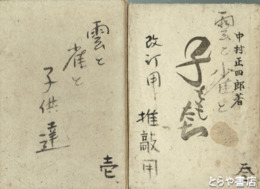 中村正四郎著
雲と雀と
子ども
改訂用
推敲用
雲と
雀と
子供達
壱.
とらや書店